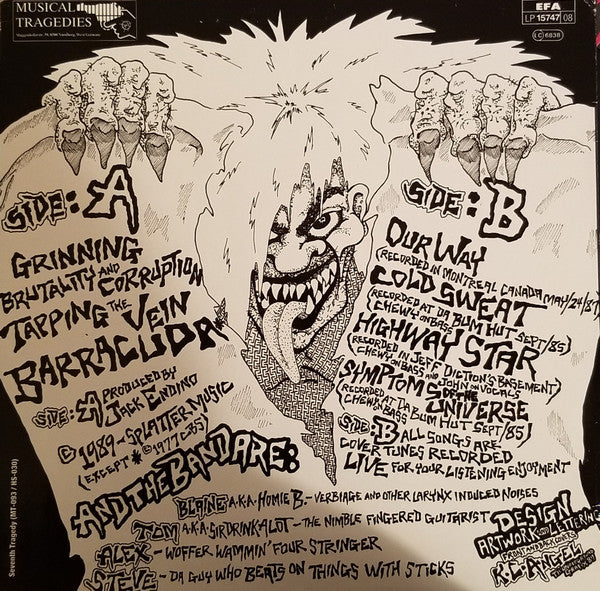 MUSICAL
TRAGEDIES
EFA
LP 15747 08
LC 6838
SIDE: A
GRINNING
BRUTALITY AND CORRUPTION
TAPPING THE VEIN
BARRACUDA*
SIDE: A PRODUCED BY
JACK ENDINO
© 1989 - SPLATTER MUSIC
(EXCEPT * © 1977 CBS)
SIDE: B
OUR WAY
(RECORDED IN MONTREAL CANADA MAY/24/87)
COLD SWEAT
(RECORDED AT DA BUM HUT SEPT/85)
(CHEWY ON BASS)
HIGHWAY STAR
(RECORDED IN JEFF DICTION'S BASEMENT)
(CHEWY ON BASS AND JOHN ON VOCALS)
SYMPTOMS OF THE
UNIVERSE
(RECORDED AT DA BUM HUT SEPT/85)
(CHEWY ON BASS)
SIDE: B ALL SONGS ARE
COVER TUNES RECORDED
LIVE FOR YOUR LISTENING ENJOYMENT
AND THE BAND ARE:
BLAINE A.K.A. HOMIE B. - VERBIAGE AND OTHER LARYNX INDUCED NOISES
TOM A.K.A. SIR DRINKALOT - THE NIMBLE FINGERED GUITARIST
ALEX - WOFFER WAMMIN' FOUR STRINGER
STEVE - DA GUY WHO BEATS ON THINGS WITH STICKS
DESIGN
ARTWORK AND LETTERING
FRONT AND BACK COVERS
K.C. ANGEL
Seventh Tragedy (MT-093 / NS-030)